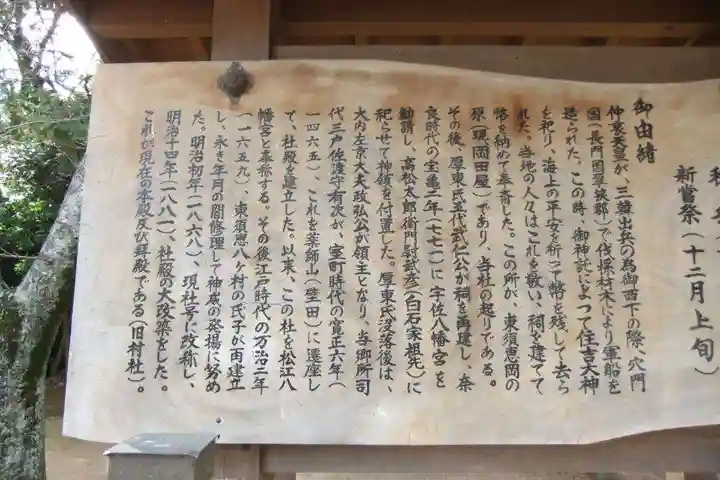 新嘗祭(十二月上旬)
御由緒
仲哀天皇が、三韓出兵の為御西下の際、穴門
国(長門国厚狭郡)で伐採材木により軍船を
造られた。この時、御神託によって住吉大神
を祀り、海上の平安を祈って幣を残して去ら
れた。当地の人々はこれを敬い、祠を建てて
幣を納めて奉斎した。この所が、東須恵岡の
原(現岡田屋)であり、当社の起りである。
その後、厚東氏五代武仁公が祠を再建し、奈
良時代の宝亀二年(七七一)に宇佐八幡宮を
勧請し、高松太郎衛門尉武彦(白石家祖先)に
祀らせて神領を付置した。厚東氏没落後は、
大内左京大夫政弘公が領主となり、当郷所司
代三戸佐渡守有次が、室町時代の寛正六年(
一四六五)、これを薬師山(壁田)に遷座し
て、社殿を建立した。以来、この社を松江八
幡宮と奉称する。その後江戸時代の万治二年
(一六五九)、東須恵八ヶ村の氏子が再建立
し、永き年月の間修理して神威の発揚に努め
た。明治初年(一八六八)、現社号に改称し、
明治十四年(一八八一)、社殿の大改築をした。
これが現在の本殿及び拝殿である(旧村社)。